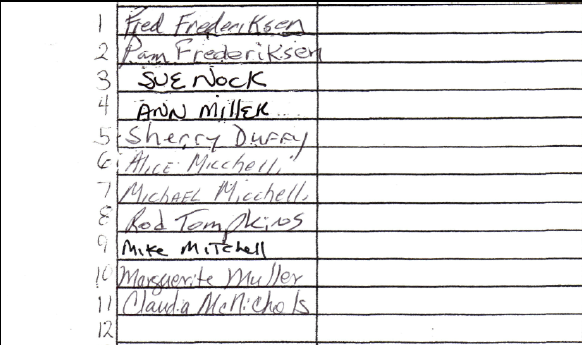 1 Fred Frederiksen
2 Pam Frederiksen
3 SUE NOCK
4 ANN MILLER
5 Sherry DUFFY
6 ALICE Micchelli
7 MICHAEL Micchelli
8 Rod Tompkins
9 MIKE MITCHELL
10 Marguerite Muller
11 Claudia McNichols
12